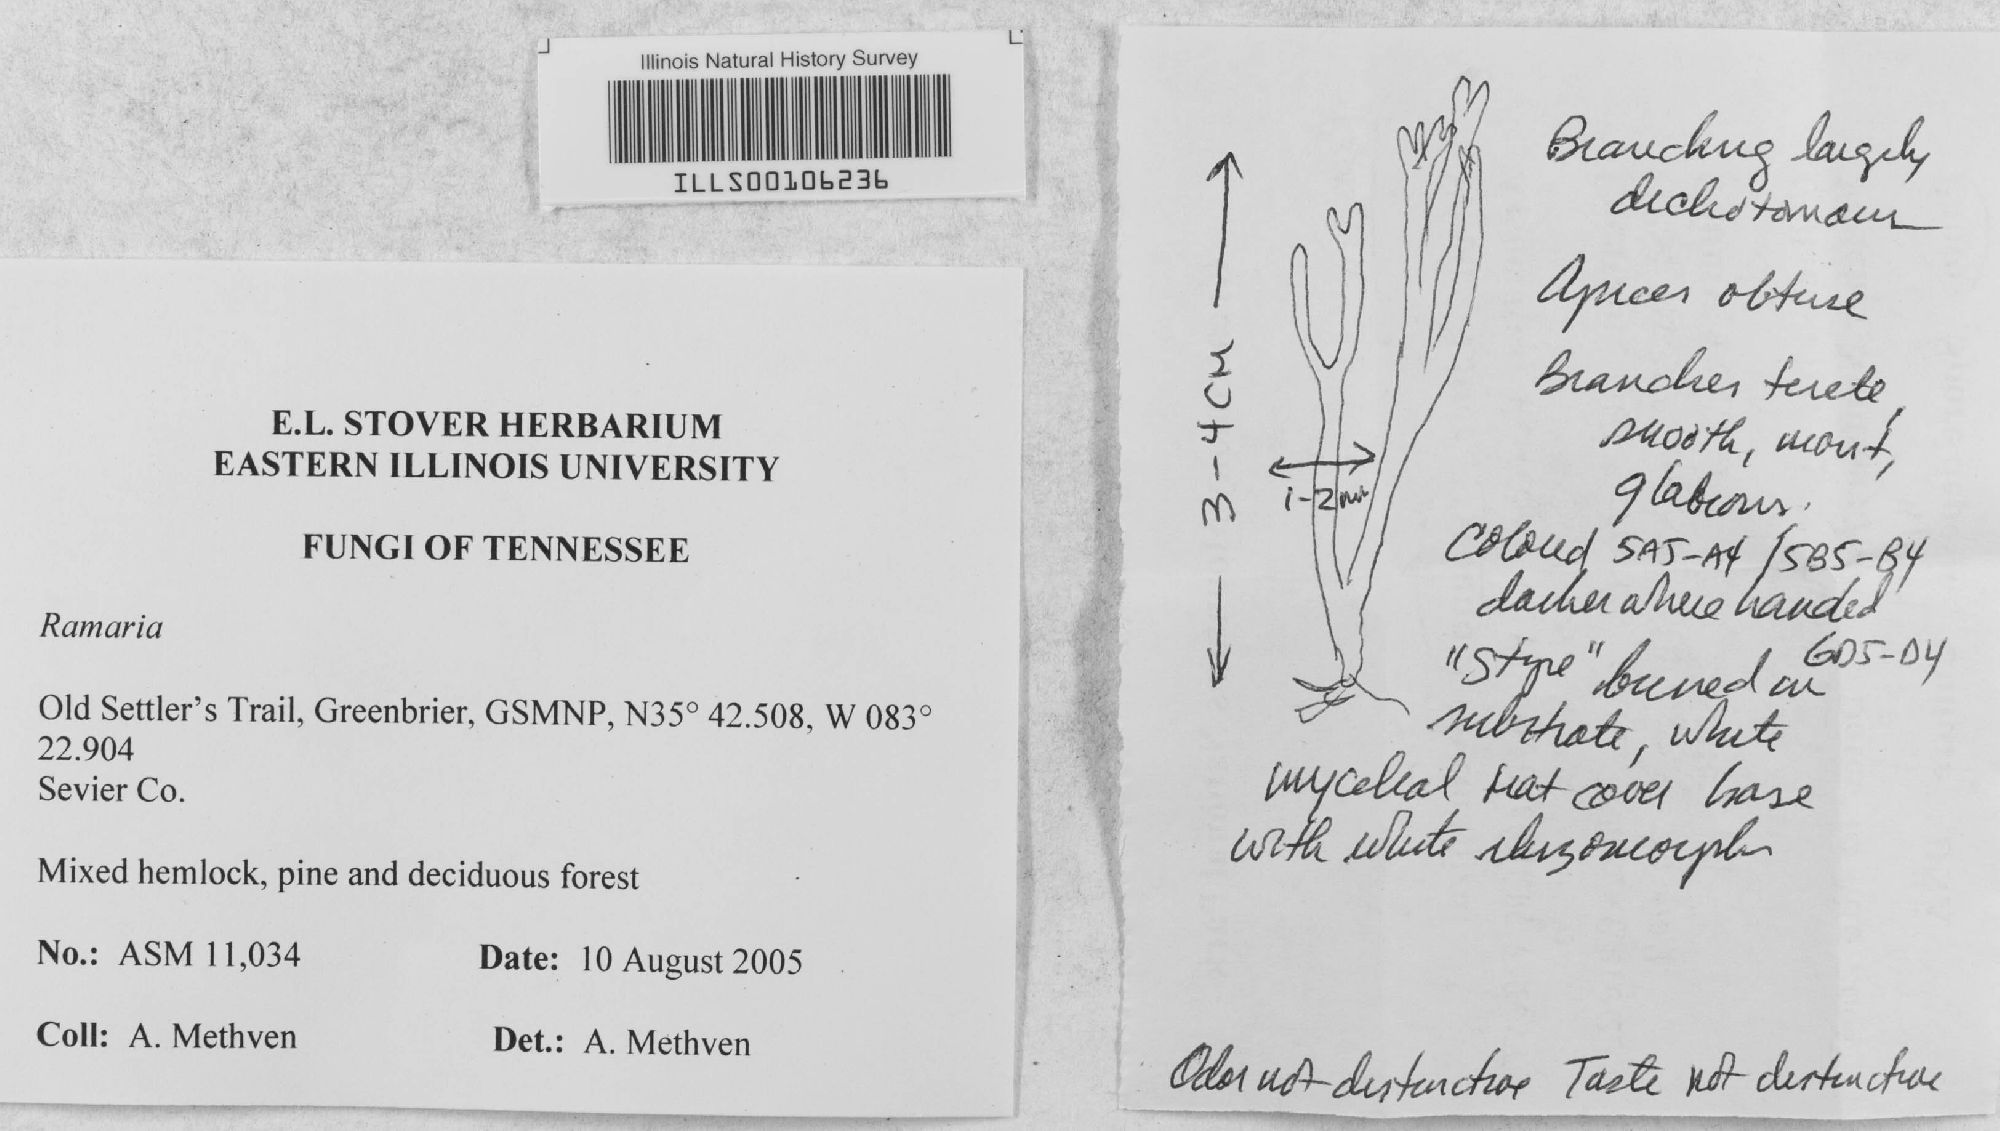 Illinois Natural History Survey
ILLS00106236
E.L. STOVER HERBARIUM
EASTERN ILLINOIS UNIVERSITY
FUNGI OF TENNESSEE
Ramaria
Old Settler's Trail, Greenbrier, GSMNP, N35° 42.508, W 083°
22.904
Sevier Co.
Mixed hemlock, pine and deciduous forest
No.: ASM 11,034 Date: 10 August 2005
Coll: A. Methven Det.: A. Methven
3-4CM
1-2mm
Branching largely
dichotomous
Apices obtuse
Branches terete,
smooth, moist,
glabrous.
Colored 5A5-A4/5B5-B4
darker where handled
6D5-D4
"Stipe" buried in
substrate, white
mycelial mat cover base
with white rhizomorphs
Odor not distinctive Taste not distinctive